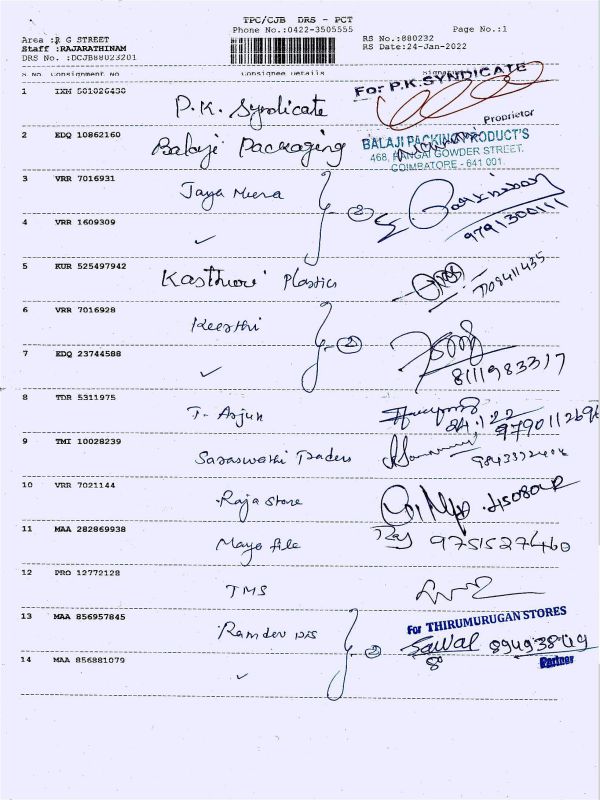 TPC/CJB DRS - PCT
Phone No.:0422-3505555
Page No.:1
Area :R G STREET
Staff :RAJARATHINAM
DRS No. :DCJB88023201
RS No.:880232
RS Date:24-Jan-2022
S No Consignment No Consignee Details
1 IXM 501026430 P.K. Syndicate For P.K.SYNDICATE
Proprietor
2 EDQ 10862160 Balaji Packaging BALAJI PACKING PRODUCT'S
468, RANGAI GOWDER STREET,
COIMBATORE - 641 001.
3 VRR 7016931 Jaya Meena 2
9791300111
4 VRR 1609309 ✓
5 KUR 525497942 Kasthuri Plastics
6 VRR 7016928 Keerthi 2
7 EDQ 23744588 ✓ 8111983317
8 TDR 5311975 T. Arjun 24.1.22
9 TMI 10028239 Saraswathi Traders
10 VRR 7021144 Raja Store
11 MAA 282869938 Mayo file Raj 9751527460
12 PRO 12772128 TMS
13 MAA 856957845 Ramdev 2 For THIRUMURUGAN STORES
Sawal
Partner
14 MAA 856881079 ✓